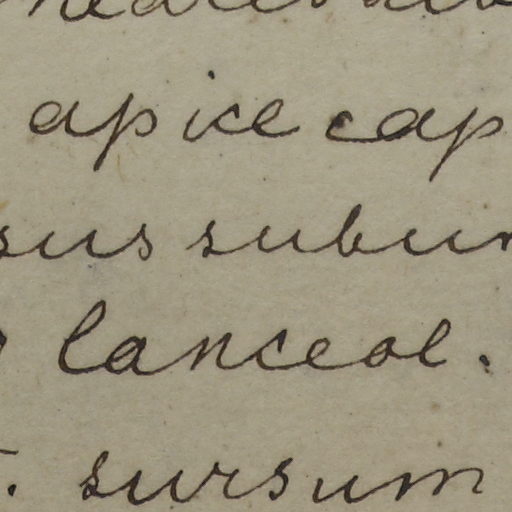 apice cap
sus subun
lanceol.
sursum